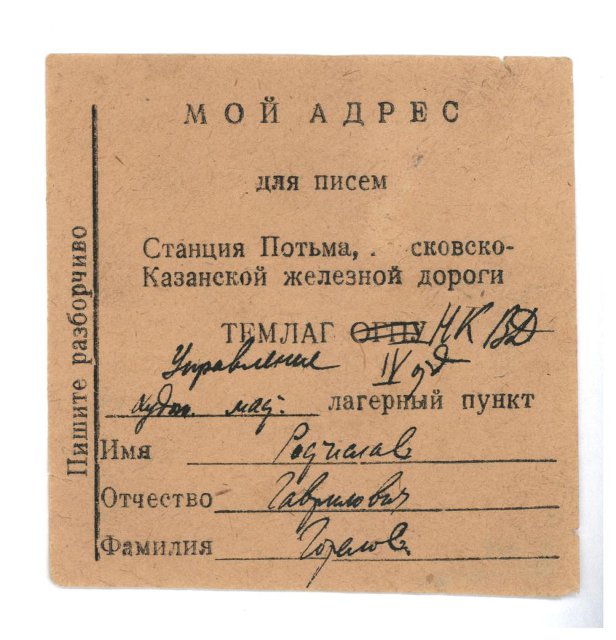 МОЙ АДРЕС
для писем
Станция Потьма, . сковско-
Казанской железной дороги
ТЕМЛАГ ОГПУ НКВД
Управление IV
худож. маст. лагерный пункт
Имя
Отчество Гаврилович
Фамилия Горелов
Пишите разборчиво